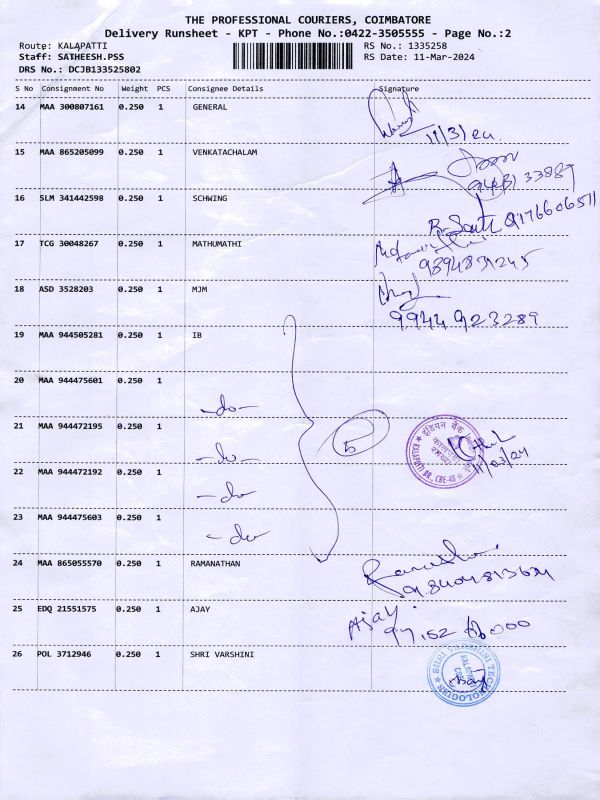 THE PROFESSIONAL COURIERS, COIMBATORE
Delivery Runsheet - KPT - Phone No.:0422-3505555 - Page No.:2
Route: KALAPATTI RS No.: 1335258
Staff: SATHEESH.PSS RS Date: 11-Mar-2024
DRS No.: DCJB133525802
S No Consignment No Weight PCS Consignee Details Signature
14 MAA 300807161 0.250 1 GENERAL
11/3/24
15 MAA 865205099 0.250 1 VENKATACHALAM
16 SLM 341442598 0.250 1 SCHWING
9176606511
17 TCG 30048267 0.250 1 MATHUMATHI
9894871245
18 ASD 3528203 0.250 1 MJM
9944 923289
19 MAA 944505281 0.250 1 IB
20 MAA 944475601 0.250 1
-do-
21 MAA 944472195 0.250 1
5
इंडियन बैंक
KALAPATTI BR., CBE-48
11/03/24
-do-
22 MAA 944472192 0.250 1
-do-
23 MAA 944475603 0.250 1
-do-
24 MAA 865055570 0.250 1 RAMANATHAN
25 EDQ 21551575 0.250 1 AJAY
Ajay.
26 POL 3712946 0.250 1 SHRI VARSHINI
SHRI VARSHINI TECHNOLOGIES